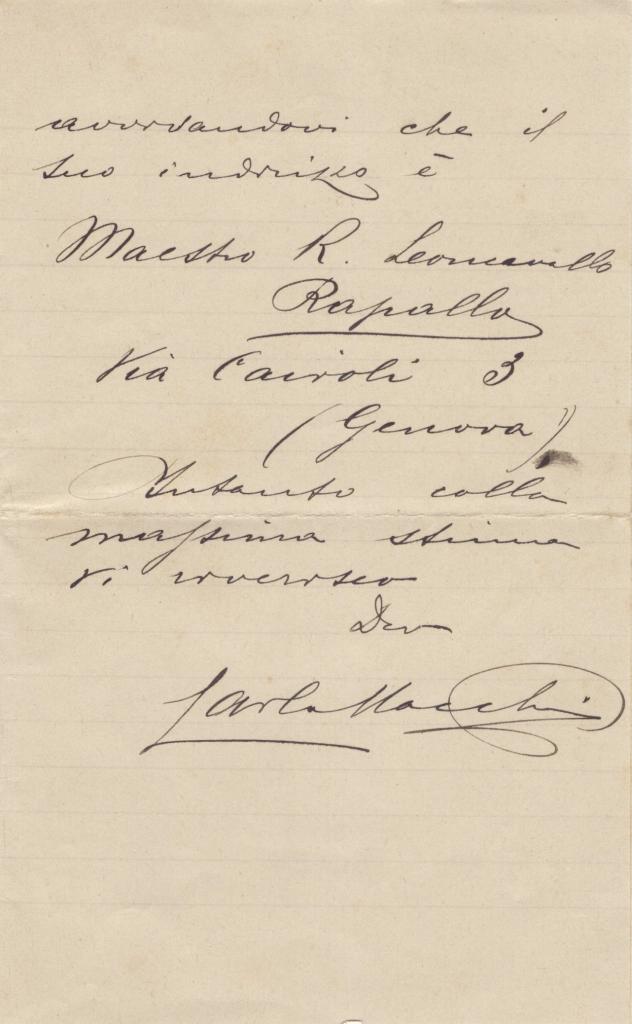 avvordandovi che il
suo indirizzo è
Maestro R. Leoncavallo
Rapallo
Via Cairoli 3
(Genova)
Intanto colla
massima stima
vi riverisco
Dev
Carlo Macchi